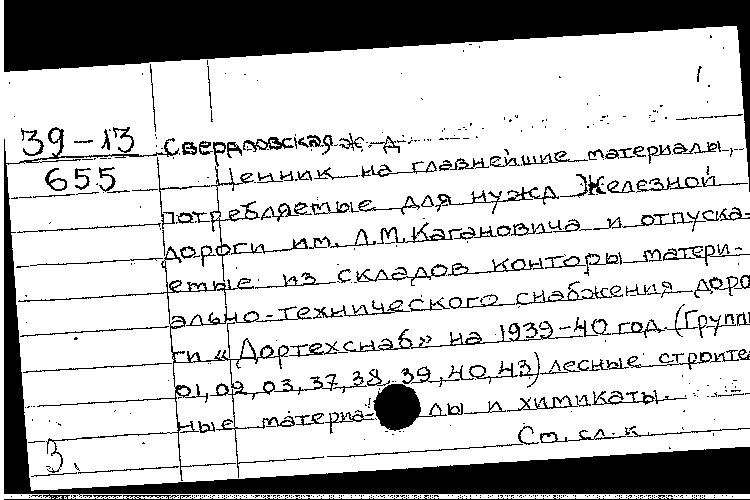 39-13
655
Свердловская ж-д
Ценник на главнейшие материалы,
потребляемые для нужд Железной
дороги им. Л.М.Кагановича и отпуска-
емые из складов конторы матери-
ально-технического снабжения доро
ги «Дортехснаб» на 1939-40 год. (Групп
01,02,03,37,38,39,40,43) лесные строите
ные материа- лы и химикаты.
См. сл. к.
3.